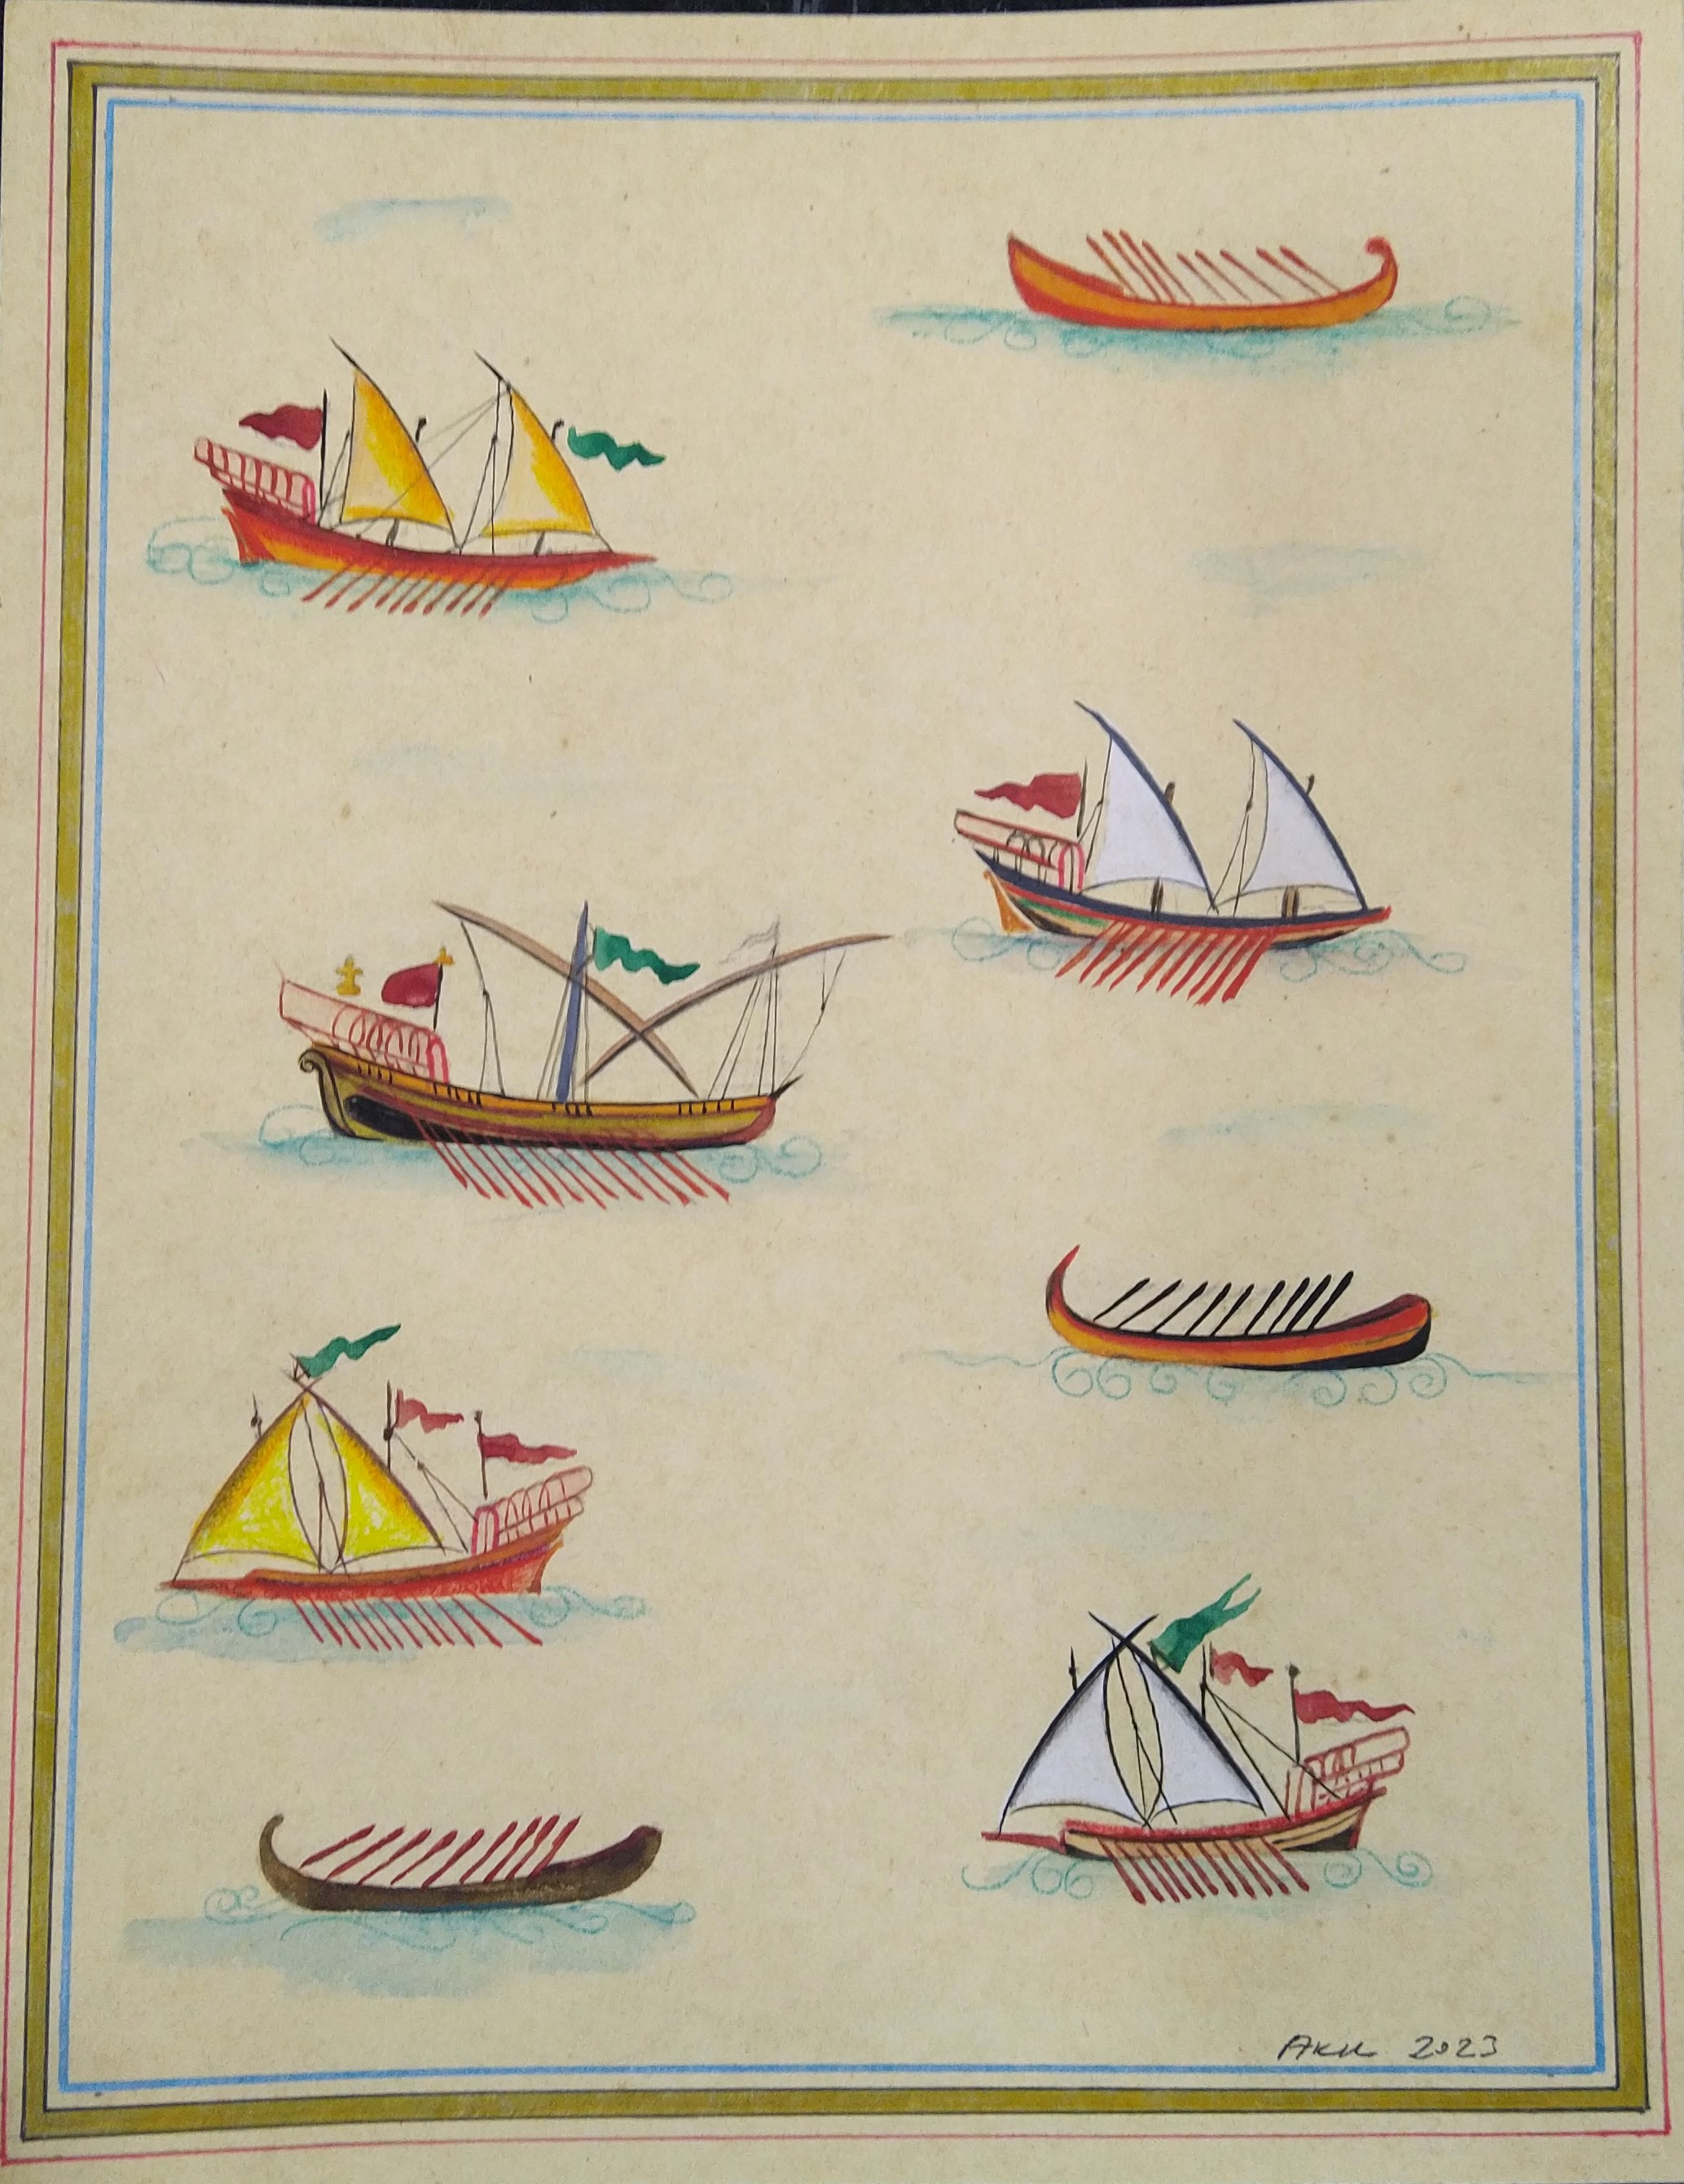 AKK 2023